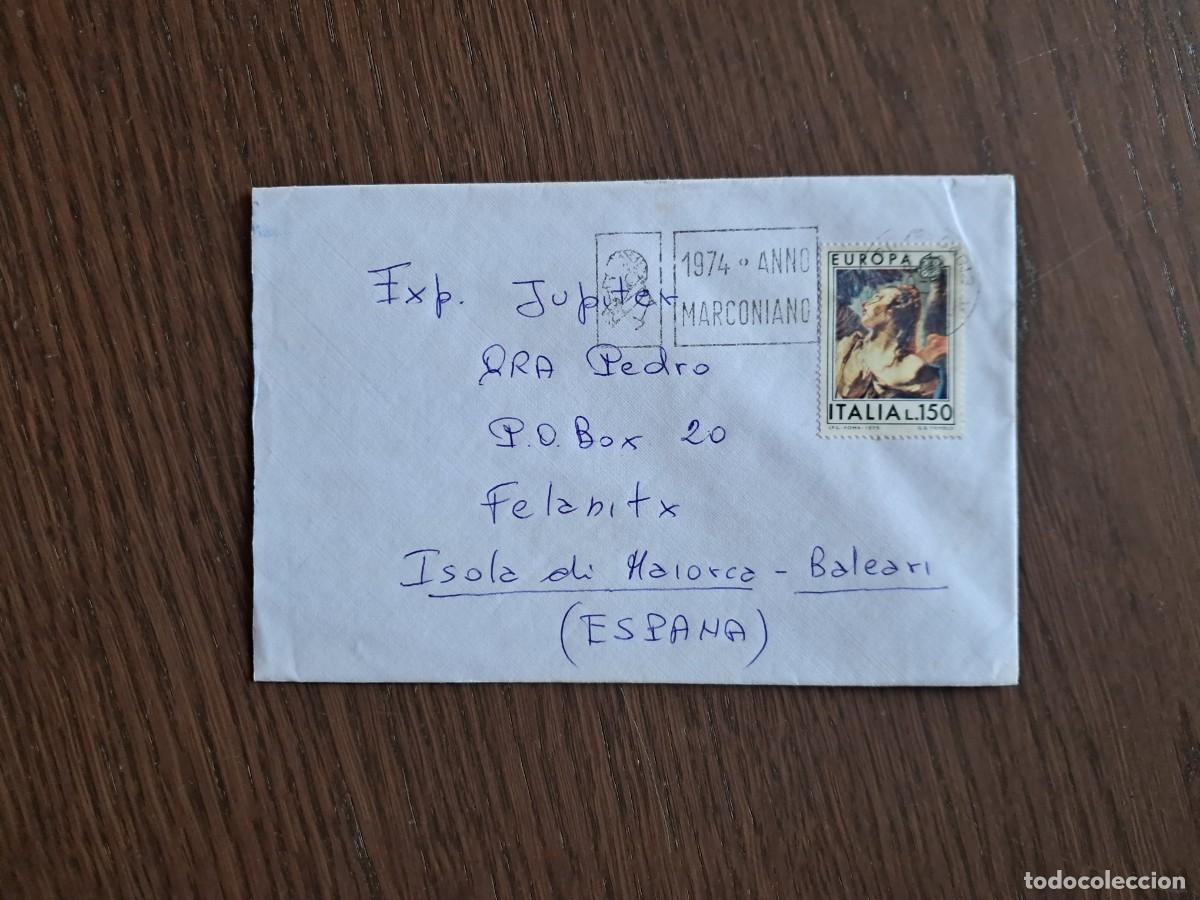 1974 ANNO
MARCONIANO
EUROPA
ITALIA L.150
I.P.S.-ROMA-1975
Exp. Jupiter
QRA Pedro
P.O. Box 20
Felanitx
Isola di Maiorca - Baleari
(ESPANA)
todocoleccion